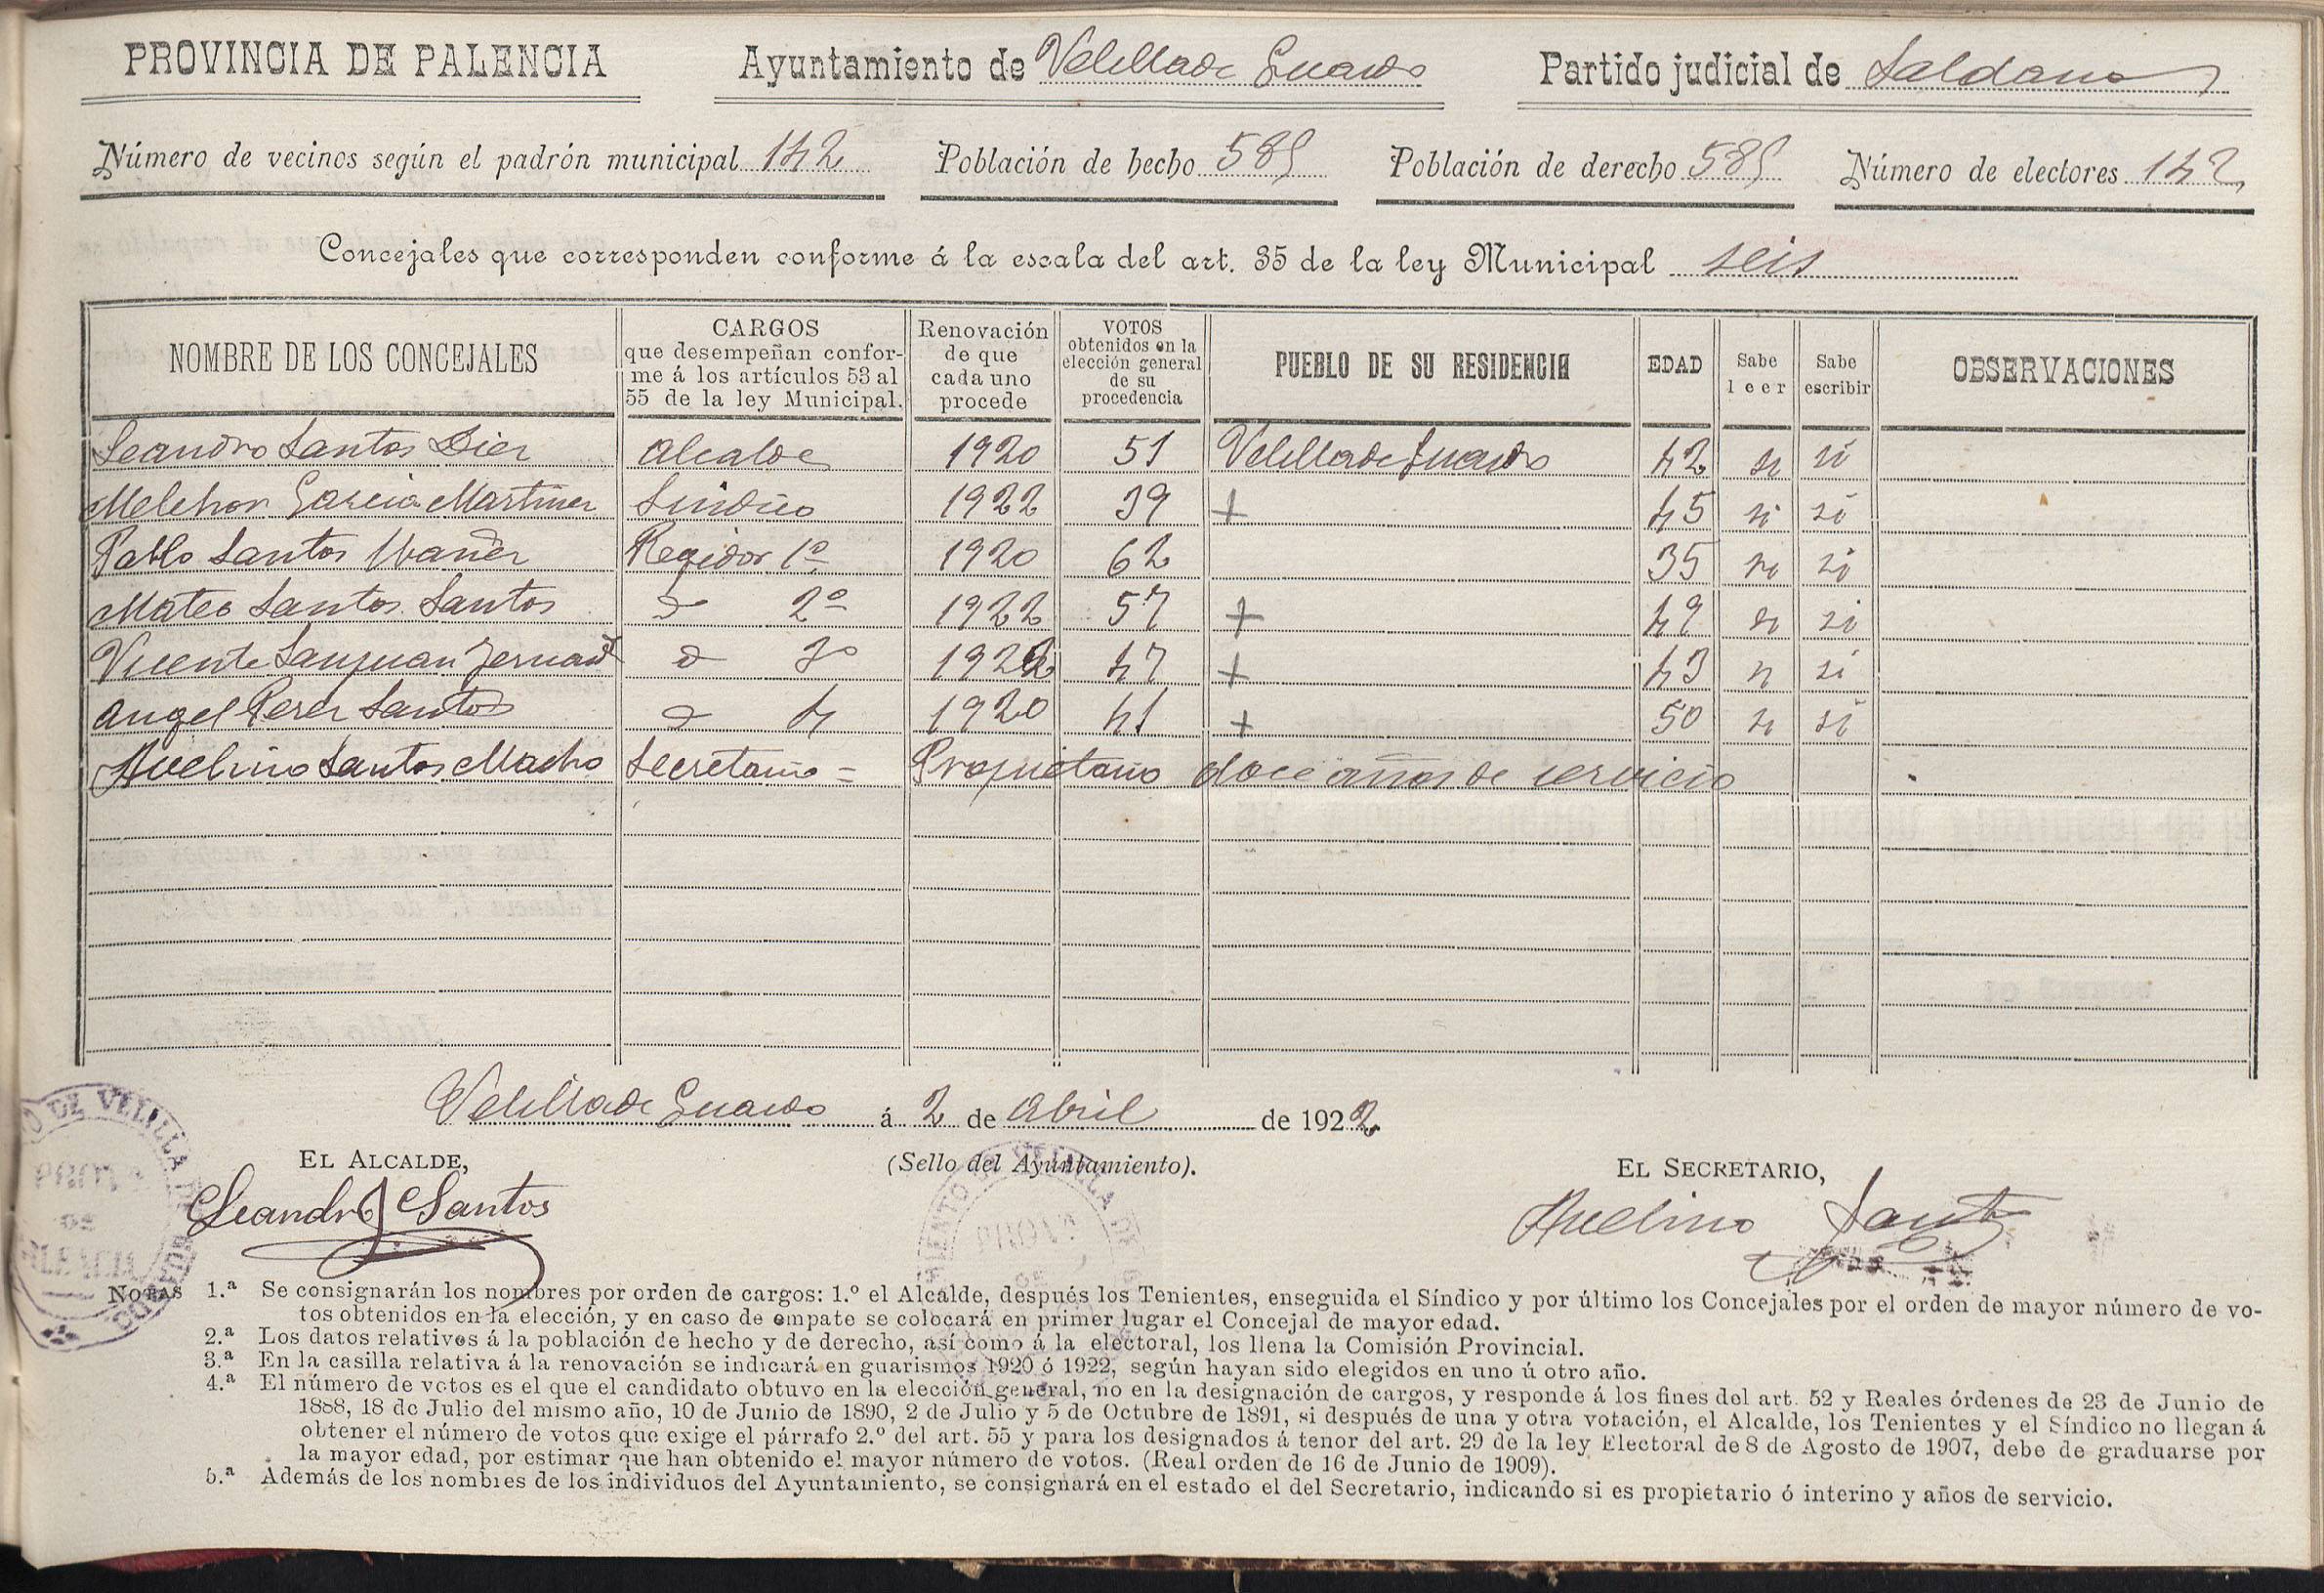 PROVINCIA DE PALENCIA Ayuntamiento de Velilla de Guardo Partido judicial de Saldaña
Número de vecinos según el padrón municipal 142 Población de hecho 585 Población de derecho 585 Número de electores 142
Concejales que corresponden conforme á la escala del art. 35 de la ley Municipal seis
NOMBRE DE LOS CONCEJALES CARGOS que desempeñan conforme á los artículos 53 al 55 de la ley Municipal. Renovación de que cada uno procede VOTOS obtenidos en la elección general de su procedencia PUEBLO DE SU RESIDENCIA EDAD Sabe leer Sabe escribir OBSERVACIONES
Leandro Santos Diez Alcalde 1920 51 Velilla de Guardo 42 si si
Melchor Garcia Martinez Sindico 1922 39 + 45 si si
Pablo Santos Ibañez Regidor 1º 1920 62 35 si si
Mateo Santos Santos 2º 1922 57 + 49 si si
Vicente Sanjuan Fernand 3º 1922 47 + 43 si si
Angel Perez Santos 4 1920 41 + 50 si si
Avelino Santos Macho Secretario = Propietario doce años de servicio
Velilla de Guardo á 2 de Abril de 1922
EL ALCALDE, (Sello del Ayuntamiento). EL SECRETARIO,
Leandro Santos Avelino Santos
NOTAS 1.ª Se consignarán los nombres por orden de cargos: 1.º el Alcalde, después los Tenientes, enseguida el Síndico y por último los Concejales por el orden de mayor número de vo-
tos obtenidos en la elección, y en caso de empate se colocará en primer lugar el Concejal de mayor edad.
2.ª Los datos relativos á la población de hecho y de derecho, así como á la electoral, los llena la Comisión Provincial.
3.ª En la casilla relativa á la renovación se indicará en guarismos 1920 ó 1922, según hayan sido elegidos en uno ú otro año.
4.ª El número de votos es el que el candidato obtuvo en la elección general, no en la designación de cargos, y responde á los fines del art. 52 y Reales órdenes de 23 de Junio de
1888, 18 de Julio del mismo año, 10 de Junio de 1890, 2 de Julio y 5 de Octubre de 1891, si después de una y otra votación, el Alcalde, los Tenientes y el Síndico no llegan á
obtener el número de votos que exige el párrafo 2.º del art. 55 y para los designados á tenor del art. 29 de la ley Electoral de 8 de Agosto de 1907, debe de graduarse por
la mayor edad, por estimar que han obtenido el mayor número de votos. (Real orden de 16 de Junio de 1909).
5.ª Además de los nombres de los individuos del Ayuntamiento, se consignará en el estado el del Secretario, indicando si es propietario ó interino y años de servicio.